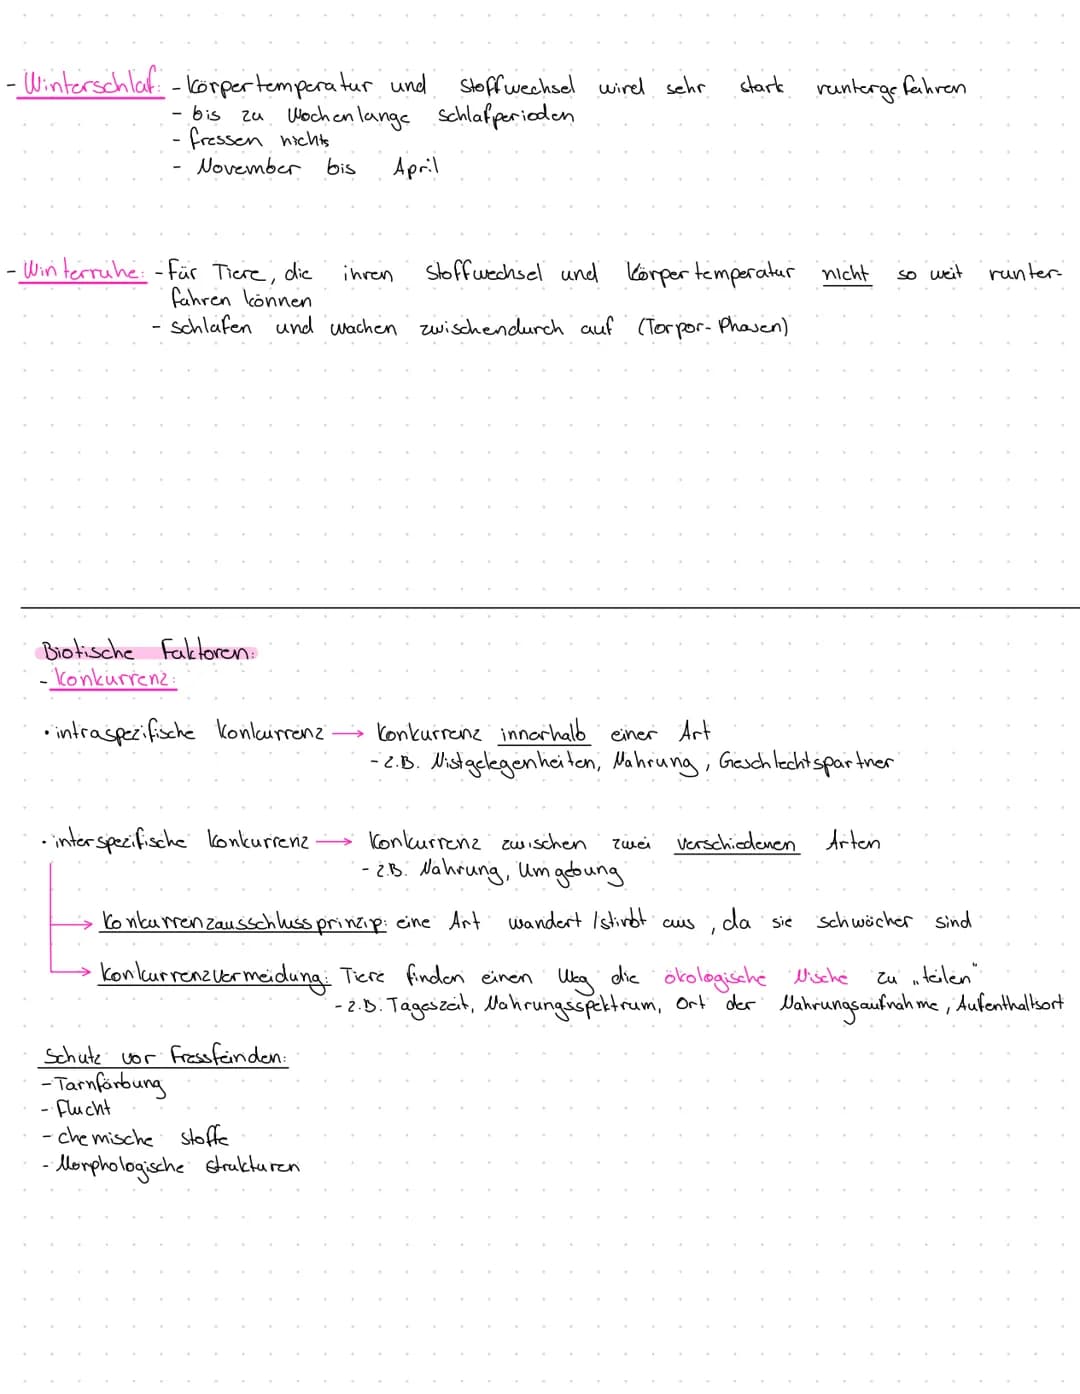 - Winterschlaf: - Körpertemperatur und Stoffwechsel wird sehr stark runtergefahren
- bis zu Wochenlange Schlafperioden
- fressen nichts
- November bis April
- Winterruhe: - Für Tiere, die ihren Stoffwechsel und Körpertemperatur nicht so weit runter-
fahren können
- schlafen und wachen zwischendurch auf (Torpor-Phasen)
Biotische Faktoren:
- Konkurrenz:
• intraspezifische Konkurrenz → Konkurrenz innerhalb einer Art
- z.B. Nistgelegenheiten, Nahrung, Geschlechtspartner
• interspezifische Konkurrenz → Konkurrenz zwischen zwei verschiedenen Arten
- z.B. Nahrung, Umgebung
→ Konkurrenzausschlussprinzip: eine Art wandert /stirbt aus, da sie schwächer sind
→ Konkurrenzvermeidung: Tiere finden einen Weg die ökologische Nische zu „teilen“
- z.B. Tageszeit, Nahrungsspektrum, Ort der Nahrungsaufnahme, Aufenthaltsort
Schutz vor Fressfeinden:
- Tarnfärbung
- Flucht
- chemische Stoffe
- Morphologische Strukturen